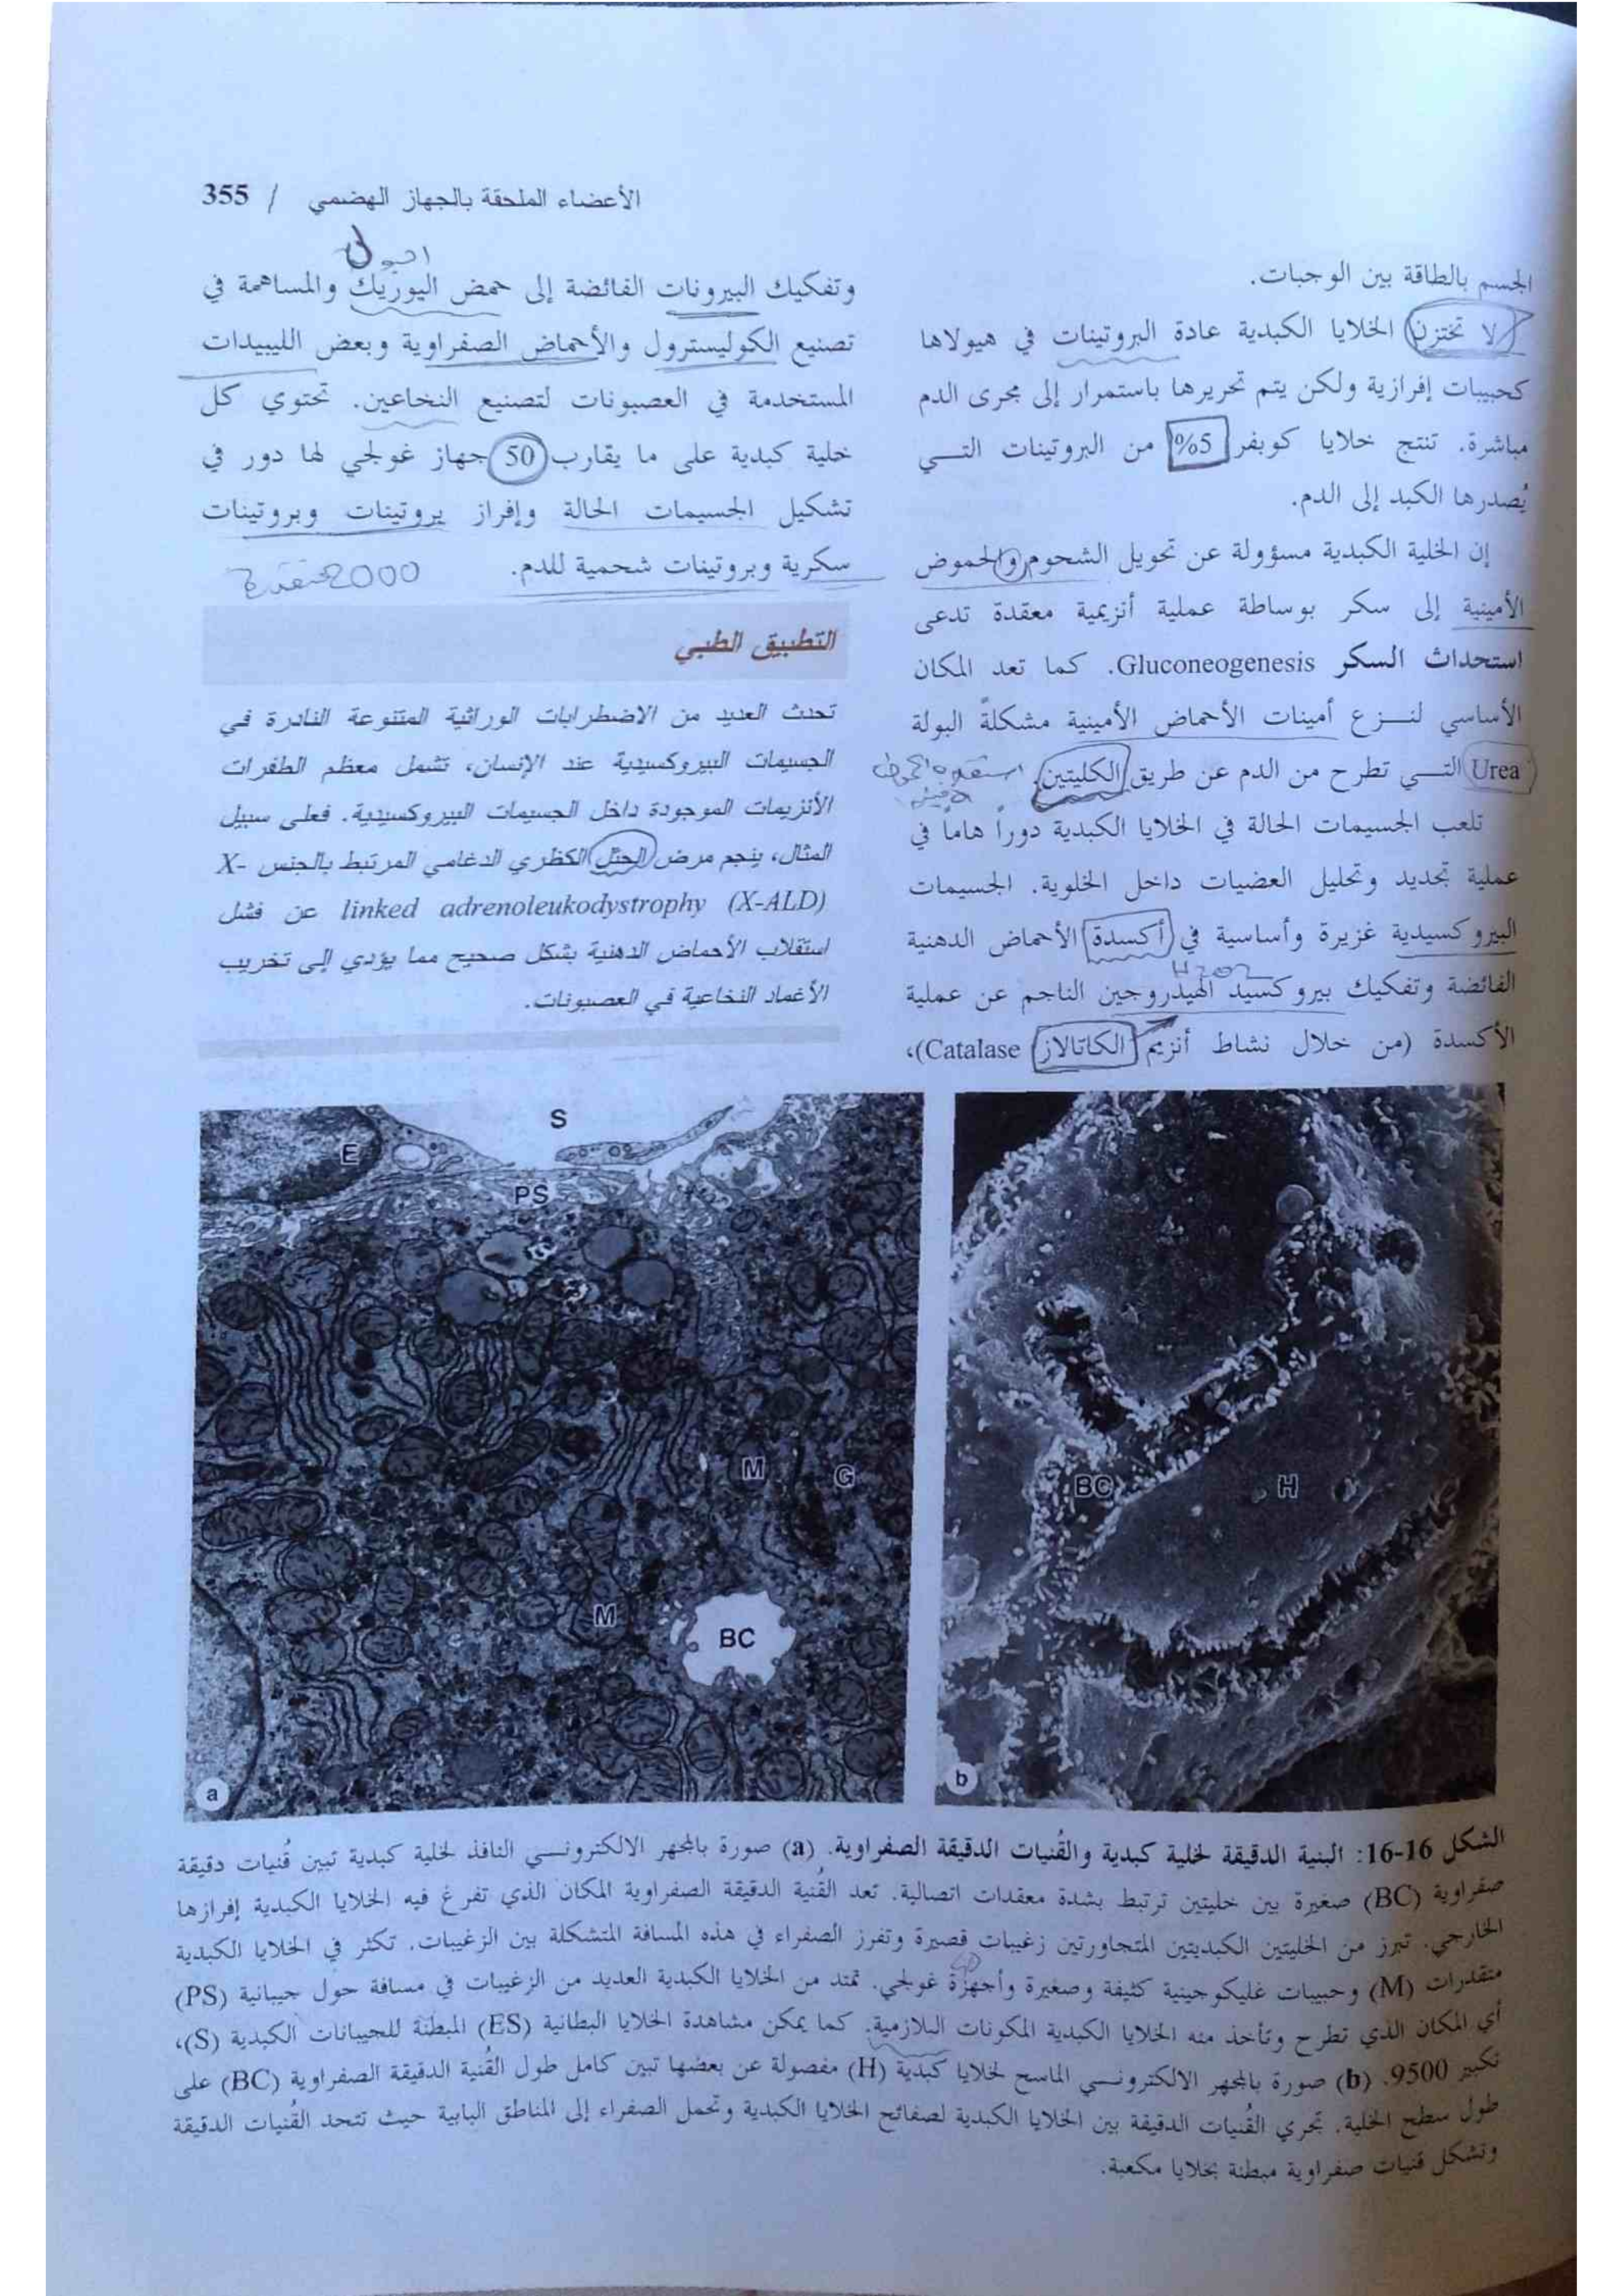 الأعضاء الملحقة بالجهاز الهضمي / 355
الجسم بالطاقة بين الوجبات.
لا تختزن الخلايا الكبدية عادة البروتينات في هيولاها
كحبيبات إفرازية ولكن يتم تحريرها باستمرار إلى مجرى الدم
مباشرة. تنتج خلايا كوبفر 5% من البروتينات التي
يُصدرها الكبد إلى الدم.
إن الخلية الكبدية مسؤولة عن تحويل الشحوم والحموض
الأمينية إلى سكر بوساطة عملية أنزيمية معقدة تدعى
استحداث السكر Gluconeogenesis. كما تعد المكان
الأساسي لنزع أمينات الأحماض الأمينية مشكلةً البولة
Urea التي تطرح من الدم عن طريق الكليتين.
تلعب الجسيمات الحالة في الخلايا الكبدية دوراً هاماً في
عملية تجديد وتحليل العضيات داخل الخلوية. الجسيمات
البيروكسيدية غزيرة وأساسية في أكسدة الأحماض الدهنية
H2O2
الفائضة وتفكيك بيروكسيد الهيدروجين الناجم عن عملية
الأكسدة (من خلال نشاط أنزيم الكاتالاز Catalase)،
وتفكيك البيرونات الفائضة إلى حمض اليوريك والمساهمة في
تصنيع الكوليسترول والأحماض الصفراوية وبعض الليبيدات
المستخدمة في العصبونات لتصنيع النخاعين. تحتوي كل
خلية كبدية على ما يقارب 50 جهاز غولجي لها دور في
تشكيل الجسيمات الحالة وإفراز بروتينات وبروتينات
سكرية وبروتينات شحمية للدم.
2000
التطبيق الطبي
تحدث العديد من الاضطرابات الوراثية المتنوعة النادرة في
الجسيمات البيروكسيدية عند الإنسان، تشمل معظم الطفرات
الأنزيمات الموجودة داخل الجسيمات البيروكسيدية. فعلى سبيل
المثال، ينجم مرض الحثل الكظري الدغامي المرتبط بالجنس X-
linked adrenoleukodystrophy (X-ALD) عن فشل
استقلاب الأحماض الدهنية بشكل صحيح مما يؤدي إلى تخريب
الأغماد النخاعية في العصبونات.
S
E
PS
M
G
M
BC
a
BC
H
b
الشكل 16-16: البنية الدقيقة لخلية كبدية والقُنيات الدقيقة الصفراوية. (a) صورة بالمجهر الالكتروني النافذ لخلية كبدية تبين قُنيات دقيقة
صفراوية (BC) صغيرة بين خليتين ترتبط بشدة معقدات اتصالية. تعد القُنية الدقيقة الصفراوية المكان الذي تفرغ فيه الخلايا الكبدية إفرازها
الخارجي. تبرز من الخليتين الكبديتين المتجاورتين زغيبات قصيرة وتفرز الصفراء في هذه المسافة المتشكلة بين الزغيبات. تكثر في الخلايا الكبدية
متقدرات (M) وحبيبات غليكوجينية كثيفة وصغيرة وأجهزة غولجي. تمتد من الخلايا الكبدية العديد من الزغيبات في مسافة حول جيبانية (PS)
أي المكان الذي تطرح وتأخذ منه الخلايا الكبدية المكونات البلازمية. كما يمكن مشاهدة الخلايا البطانية (ES) المبطنة للجيبانات الكبدية (S)،
تكبير 9500. (b) صورة بالمجهر الالكتروني الماسح لخلايا كبدية (H) مفصولة عن بعضها تبين كامل طول القُنية الدقيقة الصفراوية (BC) على
طول سطح الخلية. تجري القُنيات الدقيقة بين الخلايا الكبدية لصفائح الخلايا الكبدية وتحمل الصفراء إلى المناطق البابية حيث تتحد القُنيات الدقيقة
وتشكل قنيات صفراوية مبطنة بخلايا مكعبة.